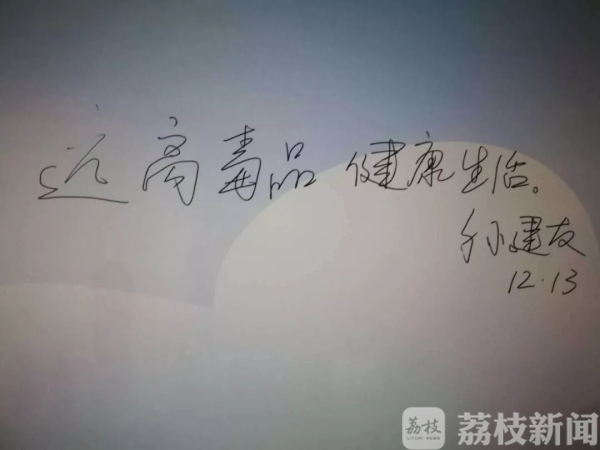 远离毒品 健康生活。
孙建友
12.13
荔枝 荔枝新闻
LITCHI NEWS